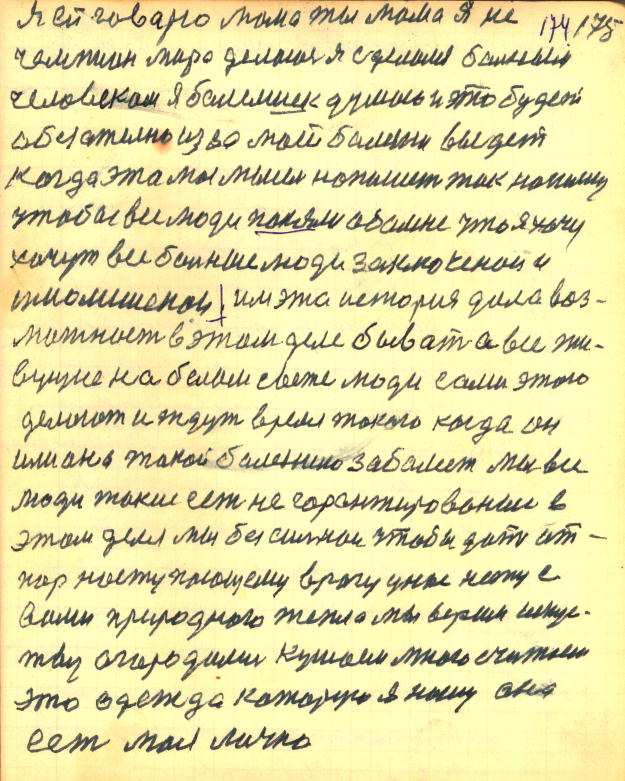 я ей говарю мама ты мама я не 174 175
чемпион мира делаюся сделали больным
человеком яболеющих думаю и это будет
обезателно из за моей болезни выйдет
когда эта мы мысля напишем так напишу
чтобы все люди поняли обомне что я хочу
хочут все больные люди заключеной и
умолишеной им эта история дала воз-
можност в этом деле бывать а все жи-
вущие на белом свете люди сами этого
делают и ждут время такого когда он
или она такой болезнию заболет мы все
люди такие ест не гарантированые в
этом деле мы без силной чтобы дать от-
пор наступающему врагу у нас нету с
вами природного тепла мы верим искус-
тву огородили кушаем много считаем
это одежда каторую я ношу она
ест моя лично